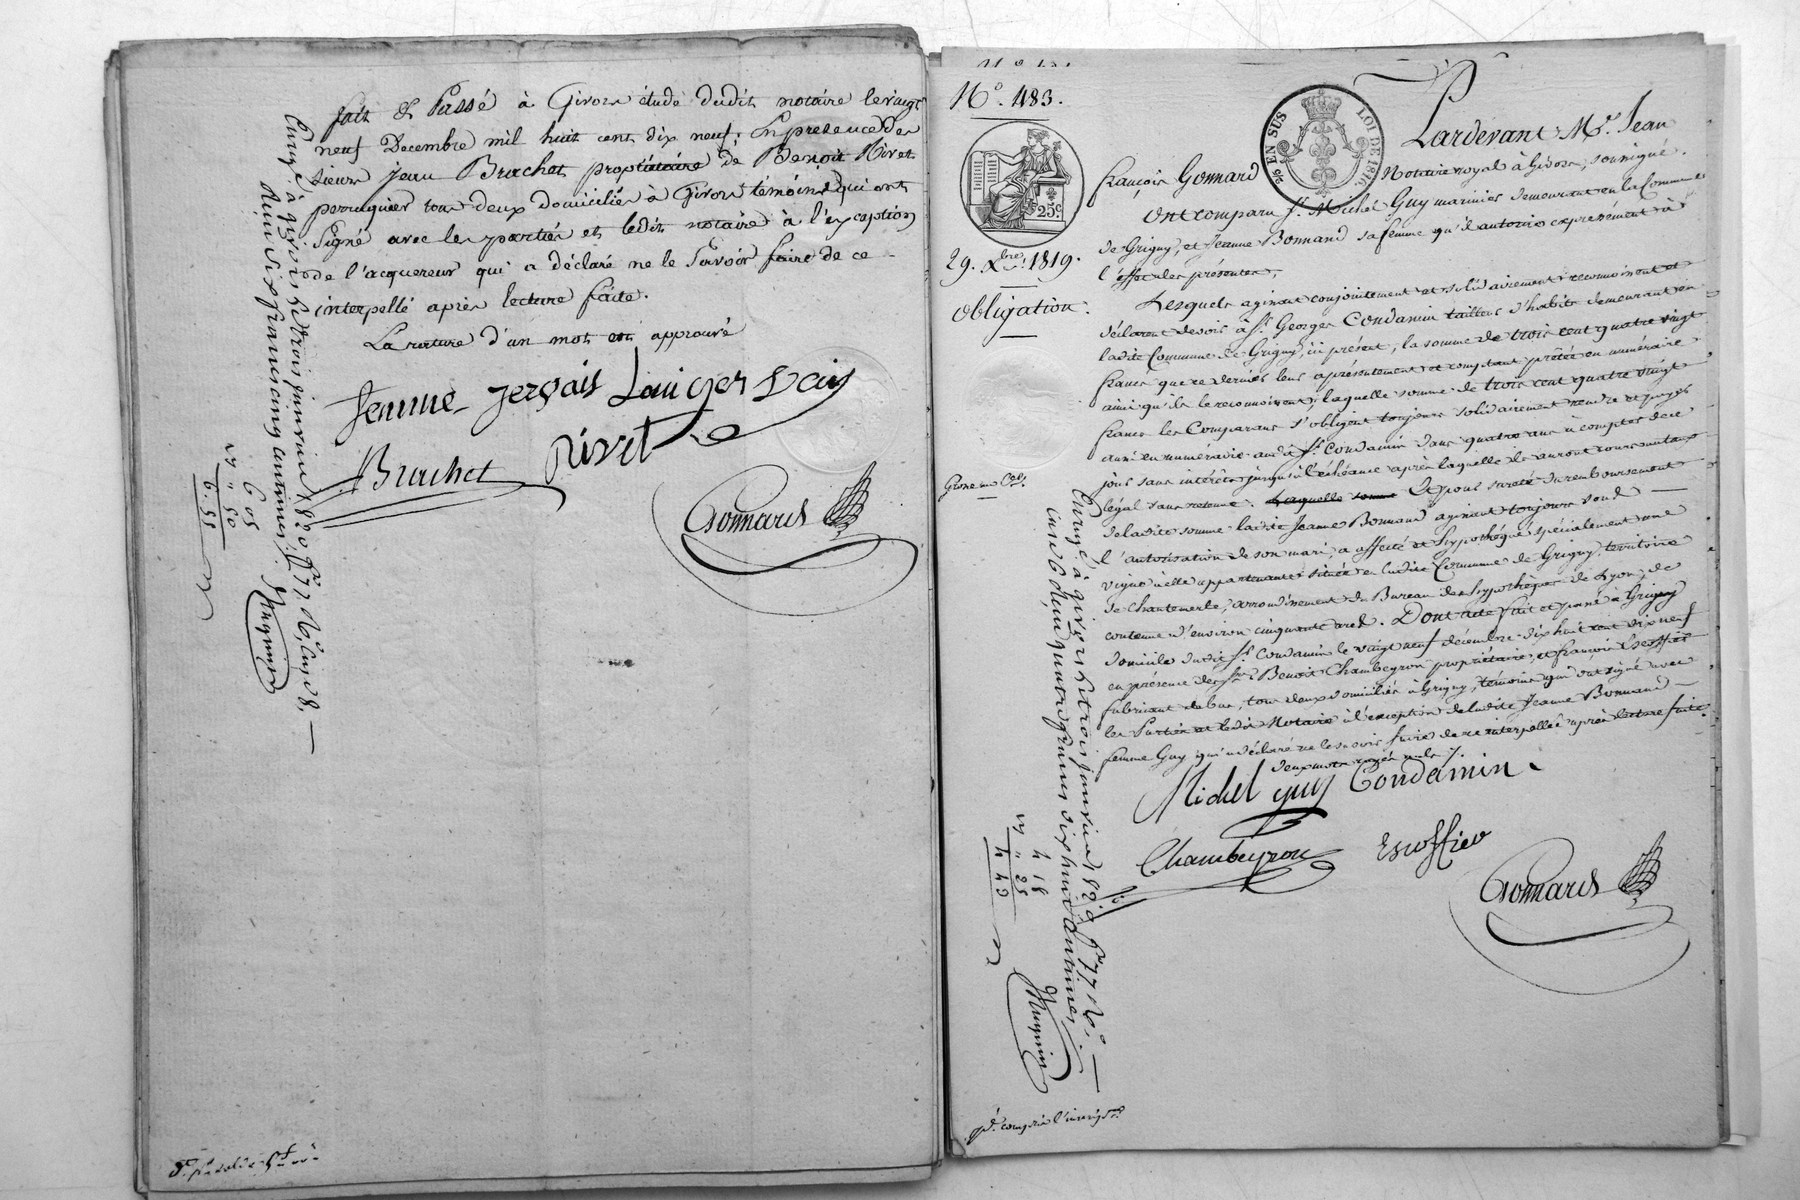 fait & Passé à Givors étude dudit notaire le vingt
neuf Decembre mil huit cent dix neuf. En presence des
sieurs Jean Brachet propriétaire de Benoit Rivet
perruquier tous deux domiciliés à Givors témoins qui ont
signé avec les parties et ledit notaire à l'exception
de l'acquereur qui a déclaré ne le savoir faire de ce
interpellé après lecture faite.
La rature d'un mot est approuvé
femme Jerçais
Brachet Rivet
Gonnard
Enreg.é à givors le trois janvier 1820 f.o 77
6 05
" 50
6.55
N.o 483.
25c
29. Xbre 1819.
Obligation.
Grosse au Cer.
EN SUS
LOI DE 1816.
Pardevant M.e Jean
françois Gonnard Notaire royal à Givors, soussigné.
Ont comparu s.r Michel Guy marinier demeurant en la Commune
de Grigny, et Jeanne Bonnand sa femme qu'il autorise expressément à
l'effet des présentes,
Lesquels agissant conjointement et solidairement reconnoissent et
déclarent devoir à s.r Georges Condamin tailleur d'habits demeurant en
ladite Commune de Grigny, ici présent, la somme de trois cent quatre vingt
francs que ce dernier leur a présentement et comptant prêtée en numéraire
ainsi qu'ils le reconnoissent, laquelle somme de trois cent quatre vingt
francs les Comparans s'obligent toujours solidairement rendre et payer
aussi en numéraire audit s.r Condamin dans quatre ans à compter de ce
jour sans intérêts jusqu'à l'échéance après laquelle ils auront cours au taux
légal sans retenue. Laquelle somme Et pour sureté du remboursement
de ladite somme ladite Jeanne Bonnand agissant toujours sous
l'autorisation de son mari, a affecté et hypothéqué spécialement une
vigne à elle appartenante située en ladite Commune de Grigny, territoire
de Chantemerle, arrondissement du Bureau des hypothèques de Lyon, de
contenue d'environ cinquante ares. Dont acte fait et passé à Grigny
domicile dudit s.r Condamin le vingt neuf décembre dix huit cent dix neuf
en présence des s.rs Benoit Chambeyron propriétaire, et françois Escoffier
fabricant de bas, tous deux domiciliés à Grigny, témoins qui ont signé avec
les Parties et ledit Notaire à l'exception de ladite Jeanne Bonnand
femme Guy, qui a déclaré ne le savoir faire de ce interpellée après lecture faite.
deux mots rayés nuls.
Michel guy Condamin
Chambeyron Escoffier
Gonnard
Enreg.é à givors le trois janvier 1820 f.o 77
4 18
" 25